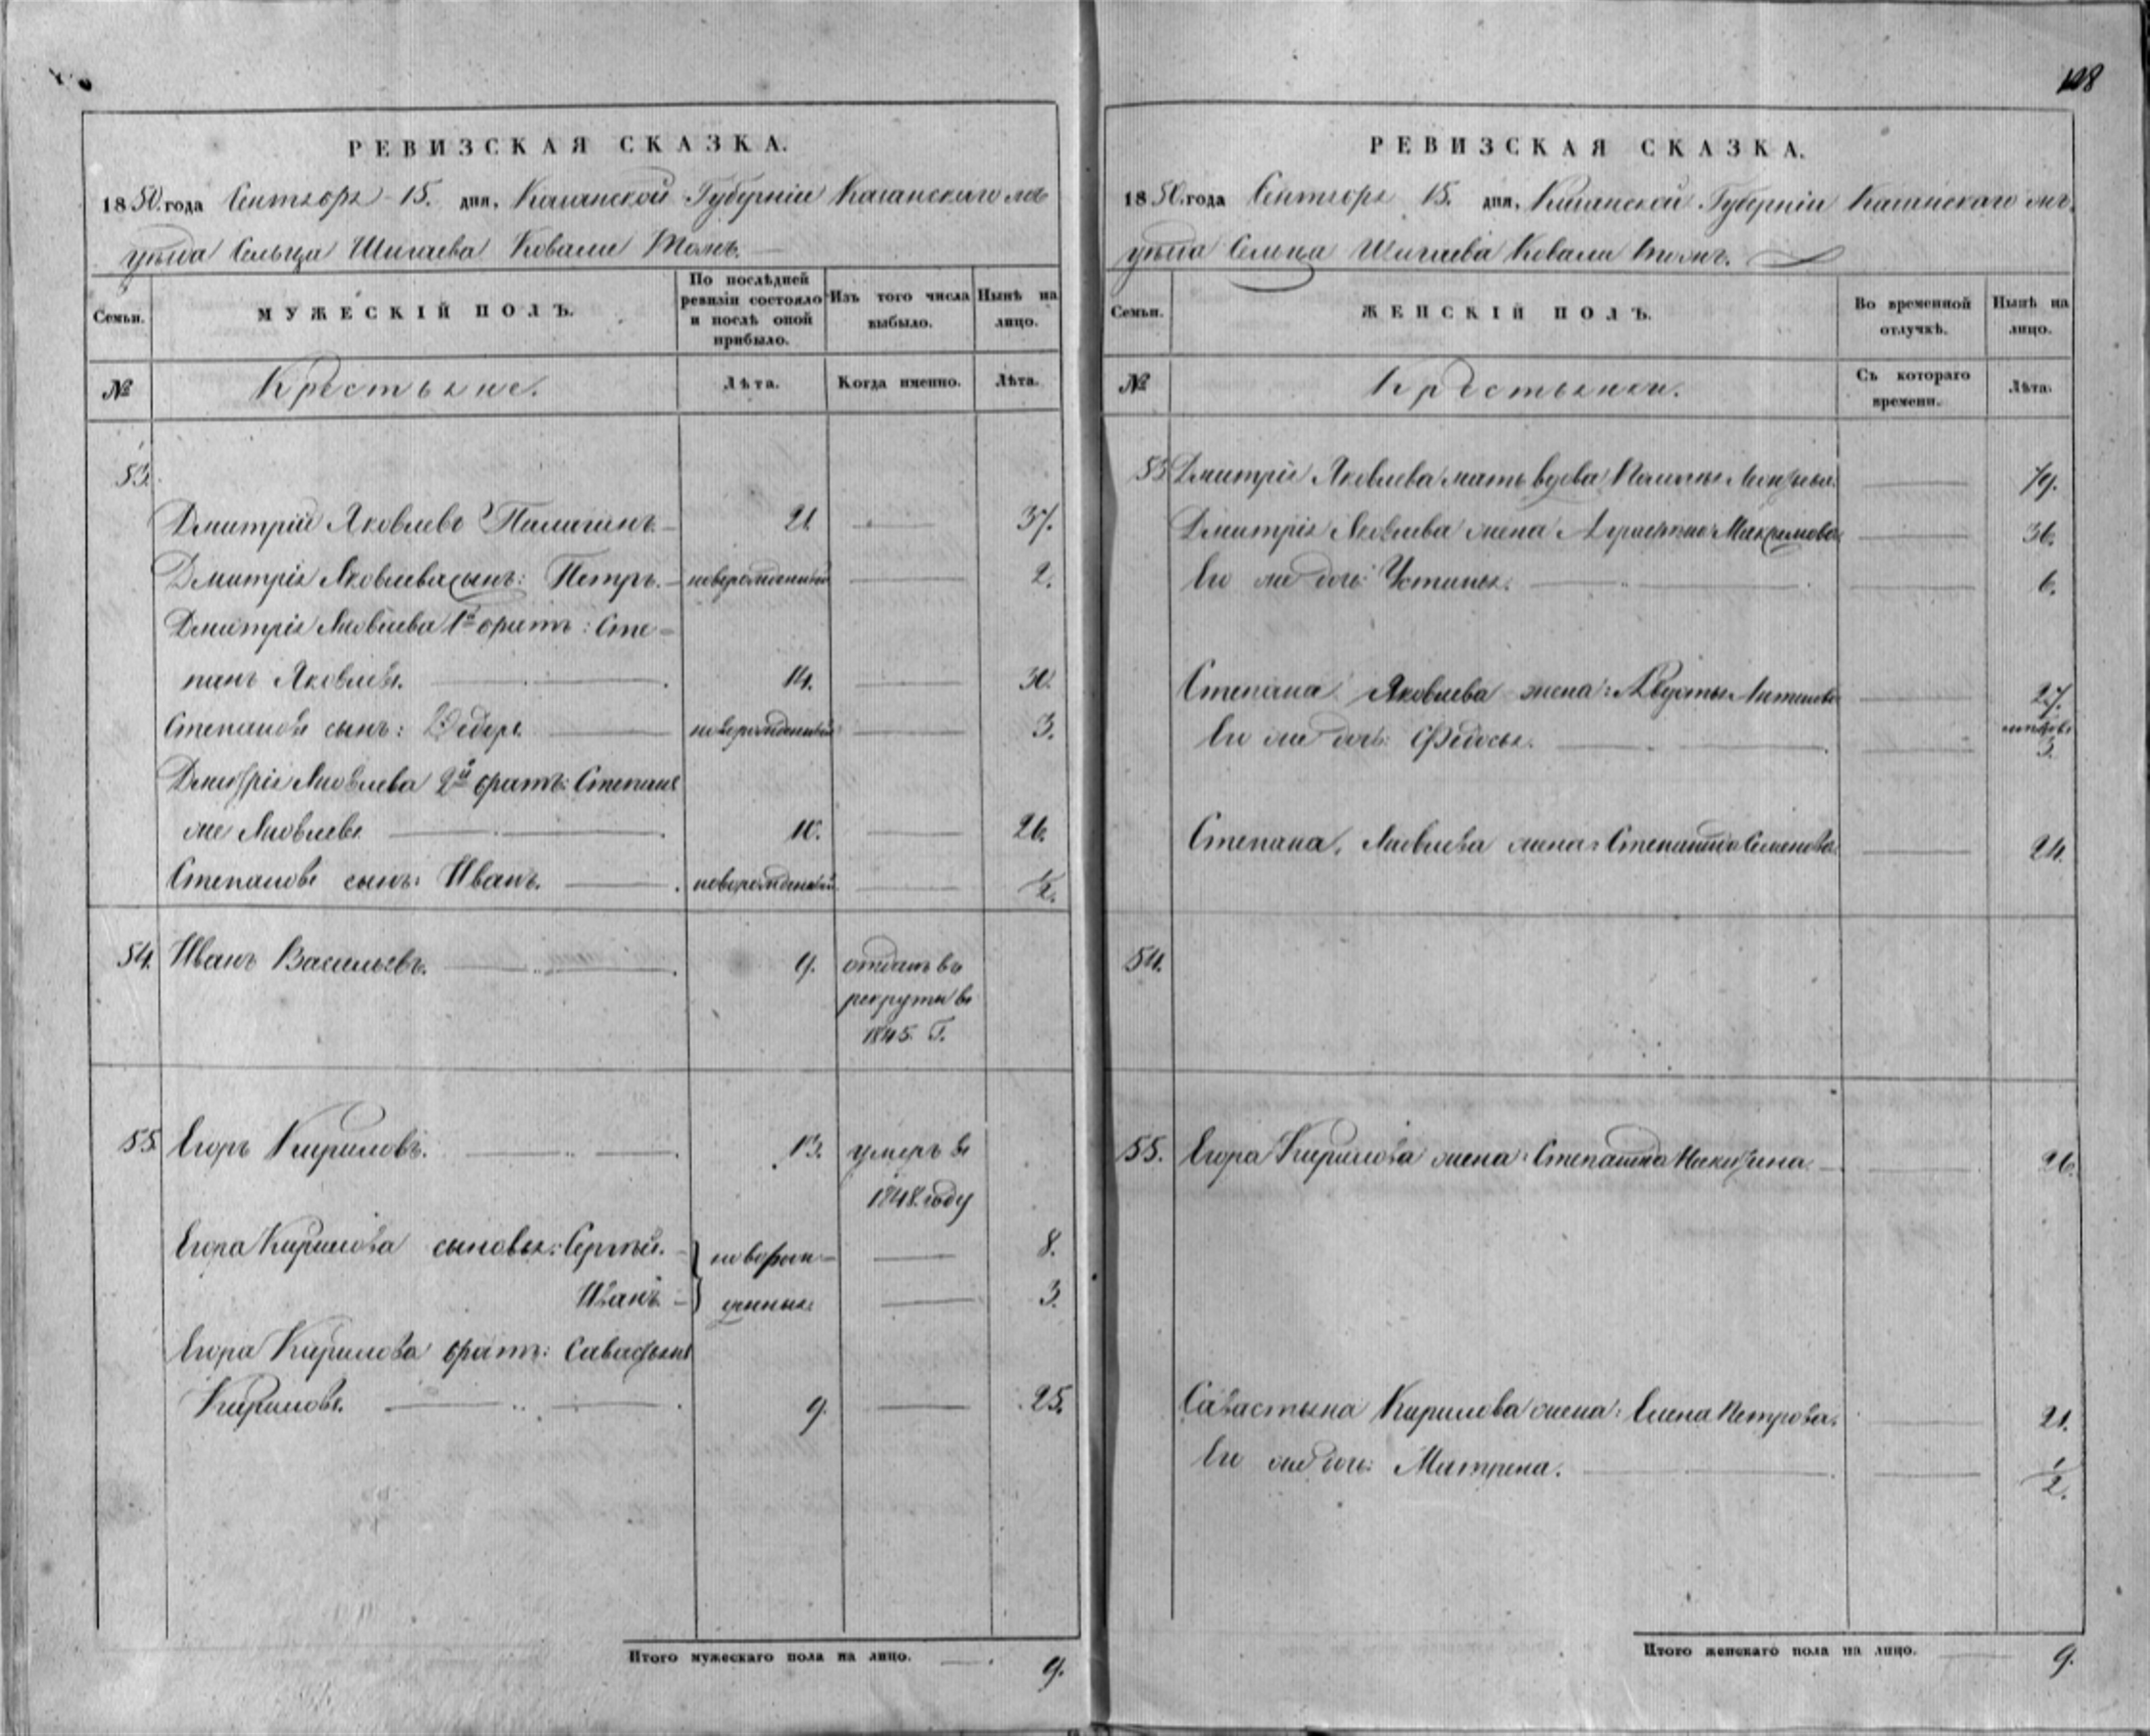 128
РЕВИЗСКАЯ СКАЗКА.
1850. года Сентября 15. дня, Казанской Губерніи Казанскаго
уѣзда Сельца Шигаева Ковали тожъ.
Семьи.
МУЖЕСКІЙ ПОЛЪ.
По послѣдней ревизіи состояло и послѣ оной прибыло.
Изъ того числа выбыло.
Нынѣ на лицо.
№
Крестьяне.
Лѣта.
Когда именно.
Лѣта.
53.
Дмитрій Яковлевъ 21. 37.
Дмитрія Яковлева сынъ: Петръ. новорожденный 2.
Дмитрія Яковлева 1й братъ: Сте-
панъ Яковлевъ. 14. 30.
Степановъ сынъ: Ѳедоръ новорожденный 3.
Дмитрія Яковлева 2й братъ: Степанъ
же Яковлевъ 10. 26.
Степановъ сынъ: Иванъ. новорожденный 1/2.
54. Иванъ Васильевъ. 9. отданъ въ
рекруты въ
1845. Г.
55. Егоръ Кириловъ. 13. умеръ въ
1848. году
Егора Кирилова сыновья: Сергѣй. новорож- 8.
Иванъ денные 3.
Егора Кирилова братъ: Савастьянъ
Кириловъ. 9. 25.
Итого мужескаго пола на лицо. 9.
РЕВИЗСКАЯ СКАЗКА.
1850. года Сентября 15. дня, Казанской Губерніи Казанскаго
уѣзда Сельца Шигаева Ковали тожъ.
Семьи.
ЖЕНСКІЙ ПОЛЪ.
Во временной отлучкѣ.
Нынѣ на лицо.
№
Крестьянки.
Съ котораго времени.
Лѣта.
53 Дмитрія Яковлева мать вдова
Дмитрія Яковлева жена Максимова 36.
Ея же дочь: Устинья. 6.
Степана Яковлева жена: Авдотья 27.
Ея же дочь: Ѳедосья.
Степана Яковлева жена: Степанида Семенова 24.
54.
55. Егора Кирилова жена: Степанида Никитина 26.
Савастьяна Кирилова жена: Елена Петрова. 21.
Ея же дочь: Матрена. 1/2.
Итого женскаго пола на лицо. 9.